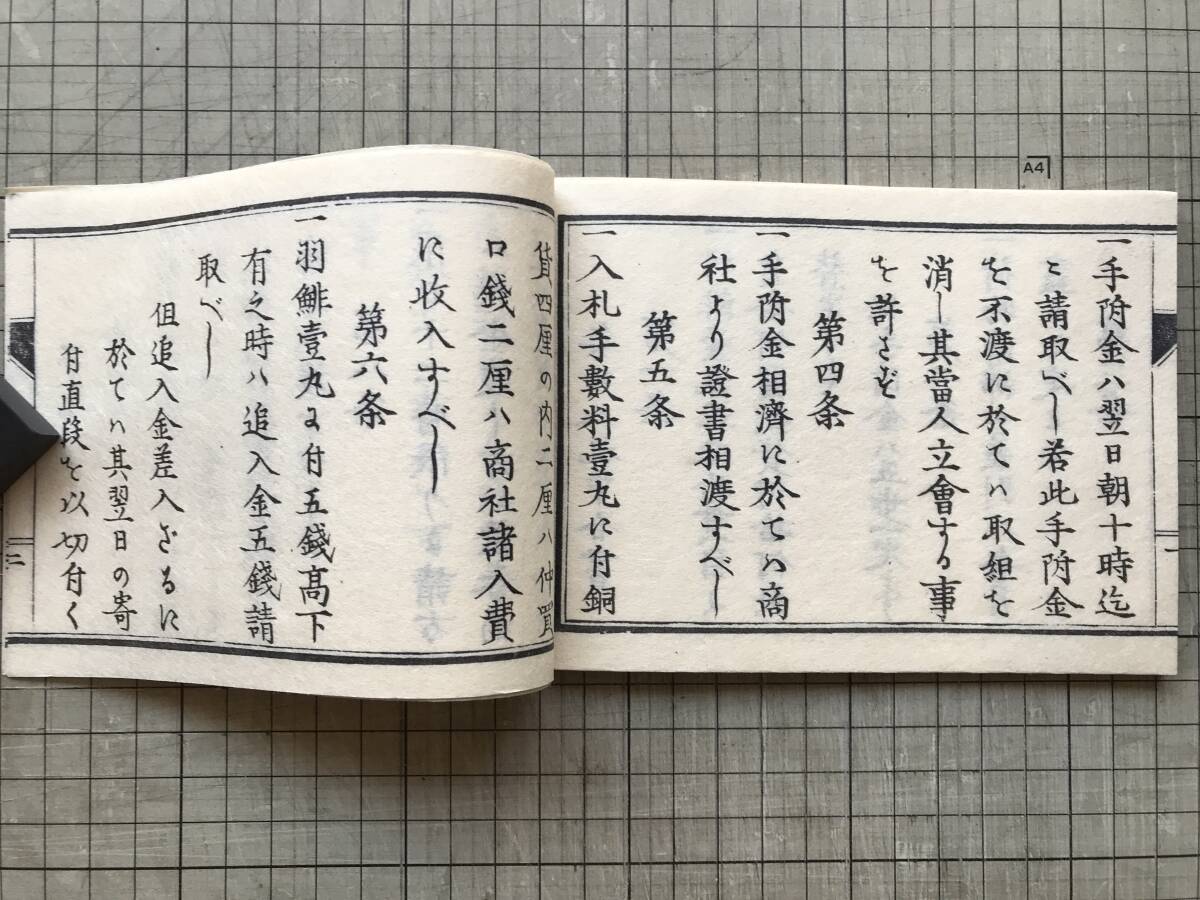 一手附金ハ翌日朝十時迄
に請取べし若此手附金
を不渡に於てハ取組を
消し其當人立會する事
を許さず
第四条
一手附金相濟に於てハ商
社より證書相渡すべし
第五条
一入札手數料壹丸に付銅
貨四厘の内二厘ハ仲買
口錢二厘ハ商社諸入費
に收入すべし
第六条
一羽鯡壹丸に付五錢高下
有之時ハ追入金五錢請
取べし
但追入金差入ざるに
於てハ其翌日の寄
付直段を以切付く
一
二
A4